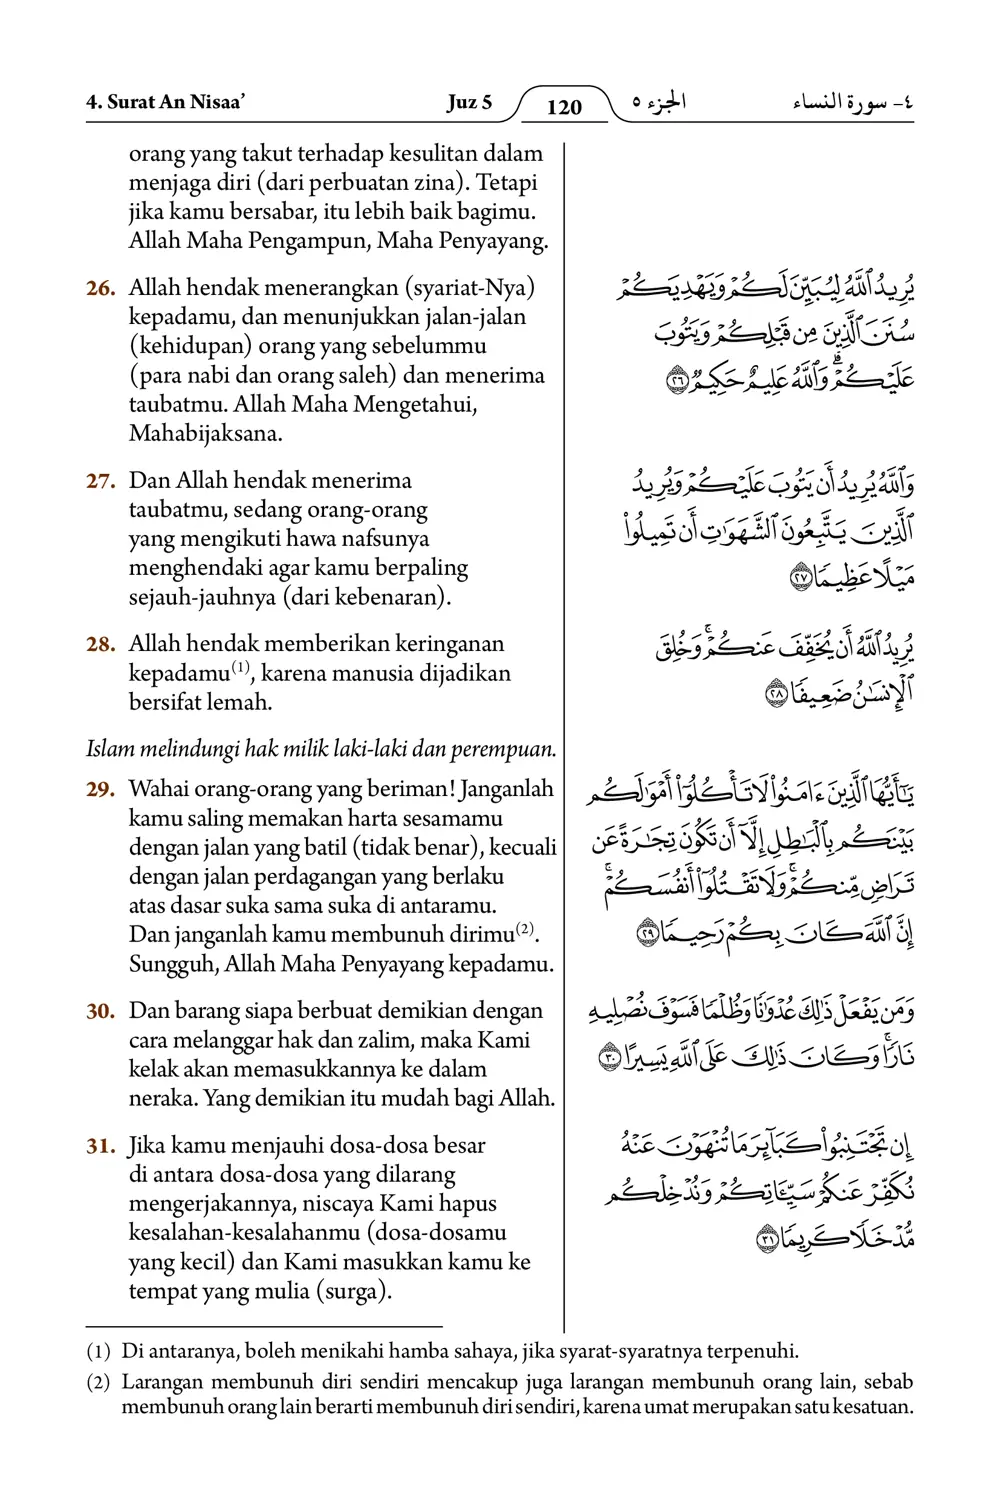 4. Surat An Nisaa’ Juz 5 120 الجزء ٥ ٤- سورة النساء
orang yang takut terhadap kesulitan dalam
menjaga diri (dari perbuatan zina). Tetapi
jika kamu bersabar, itu lebih baik bagimu.
Allah Maha Pengampun, Maha Penyayang.
26. Allah hendak menerangkan (syariat-Nya)
kepadamu, dan menunjukkan jalan-jalan
(kehidupan) orang yang sebelummu
(para nabi dan orang saleh) dan menerima
taubatmu. Allah Maha Mengetahui,
Mahabijaksana.
يُرِيدُ ٱللَّهُ لِيُبَيِّنَ لَكُمْ وَيَهْدِيَكُمْ
سُنَنَ ٱلَّذِينَ مِن قَبْلِكُمْ وَيَتُوبَ
عَلَيْكُمْ ۗ وَٱللَّهُ عَلِيمٌ حَكِيمٌ ٢٦
27. Dan Allah hendak menerima
taubatmu, sedang orang-orang
yang mengikuti hawa nafsunya
menghendaki agar kamu berpaling
sejauh-jauhnya (dari kebenaran).
وَٱللَّهُ يُرِيدُ أَن يَتُوبَ عَلَيْكُمْ وَيُرِيدُ
ٱلَّذِينَ يَتَّبِعُونَ ٱلشَّهَوَٰتِ أَن تَمِيلُوا۟
مَيْلًا عَظِيمًا ٢٧
28. Allah hendak memberikan keringanan
kepadamu(1), karena manusia dijadikan
bersifat lemah.
يُرِيدُ ٱللَّهُ أَن يُخَفِّفَ عَنكُمْ ۚ وَخُلِقَ
ٱلْإِنسَٰنُ ضَعِيفًا ٢٨
Islam melindungi hak milik laki-laki dan perempuan.
29. Wahai orang-orang yang beriman! Janganlah
kamu saling memakan harta sesamamu
dengan jalan yang batil (tidak benar), kecuali
dengan jalan perdagangan yang berlaku
atas dasar suka sama suka di antaramu.
Dan janganlah kamu membunuh dirimu(2).
Sungguh, Allah Maha Penyayang kepadamu.
يَٰٓأَيُّهَا ٱلَّذِينَ ءَامَنُوا۟ لَا تَأْكُلُوٓا۟ أَمْوَٰلَكُم
بَيْنَكُم بِٱلْبَٰطِلِ إِلَّآ أَن تَكُونَ تِجَٰرَةً عَن
تَرَاضٍ مِّنكُمْ ۚ وَلَا تَقْتُلُوٓا۟ أَنفُسَكُمْ ۚ
إِنَّ ٱللَّهَ كَانَ بِكُمْ رَحِيمًا ٢٩
30. Dan barang siapa berbuat demikian dengan
cara melanggar hak dan zalim, maka Kami
kelak akan memasukkannya ke dalam
neraka. Yang demikian itu mudah bagi Allah.
وَمَن يَفْعَلْ ذَٰلِكَ عُدْوَٰنًا وَظُلْمًا فَسَوْفَ نُصْلِيهِ
نَارًا ۚ وَكَانَ ذَٰلِكَ عَلَى ٱللَّهِ يَسِيرًا ٣٠
31. Jika kamu menjauhi dosa-dosa besar
di antara dosa-dosa yang dilarang
mengerjakannya, niscaya Kami hapus
kesalahan-kesalahanmu (dosa-dosamu
yang kecil) dan Kami masukkan kamu ke
tempat yang mulia (surga).
إِن تَجْتَنِبُوا۟ كَبَآئِرَ مَا تُنْهَوْنَ عَنْهُ
نُكَفِّرْ عَنكُمْ سَيِّـَٔاتِكُمْ وَنُدْخِلْكُم
مُّدْخَلًا كَرِيمًا ٣١
(1) Di antaranya, boleh menikahi hamba sahaya, jika syarat-syaratnya terpenuhi.
(2) Larangan membunuh diri sendiri mencakup juga larangan membunuh orang lain, sebab
membunuh orang lain berarti membunuh diri sendiri, karena umat merupakan satu kesatuan.